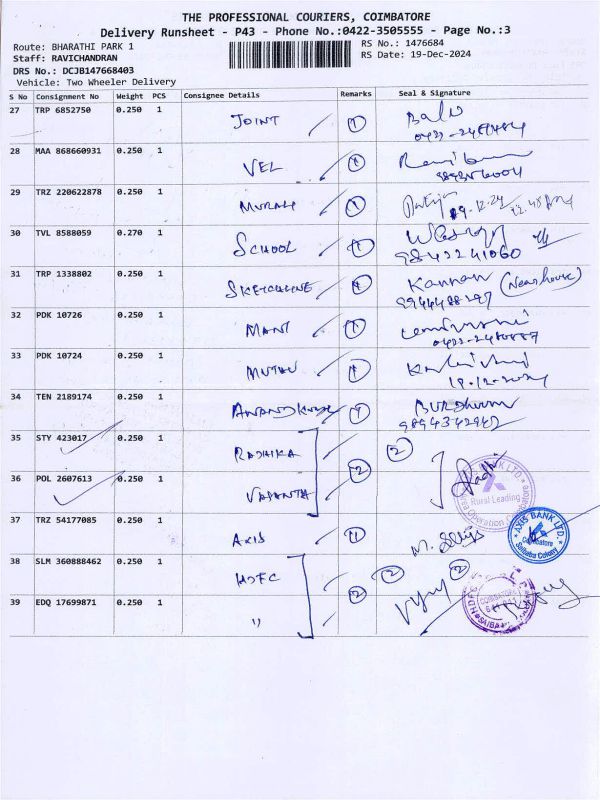 THE PROFESSIONAL COURIERS, COIMBATORE
Delivery Runsheet - P43 - Phone No.:0422-3505555 - Page No.:3
Route: BHARATHI PARK 1 RS No.: 1476684
Staff: RAVICHANDRAN RS Date: 19-Dec-2024
DRS No.: DCJB147668403
Vehicle: Two Wheeler Delivery
S No Consignment No Weight PCS Consignee Details Remarks Seal & Signature
27 TRP 6852750 0.250 1 JOINT 1 Balu
28 MAA 868660931 0.250 1 VEL 1
29 TRZ 220622878 0.250 1 MURALI 1 19.12.24 12.45 PM
30 TVL 8588059 0.270 1 SCHOOL 1
9842241060
31 TRP 1338802 0.250 1 SKETCHLINE 1 Kannan (Near house)
32 PDK 10726 0.250 1 MANI 1
33 PDK 10724 0.250 1 MUTHU 1
19.12.2024
34 TEN 2189174 0.250 1 1
9894342942
35 STY 423017 0.250 1 RADHIKA 2
36 POL 2607613 0.250 1 VASANTA 2
Rural Leading
37 TRZ 54177085 0.250 1 AXIS 1
AXIS BANK LTD. Coimbatore Saibaba Colony
38 SLM 360888462 0.250 1 HDFC 2 2
39 EDQ 17699871 0.250 1 " 2
COIMBATORE